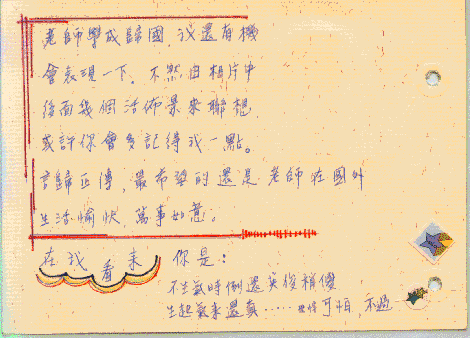 老師學成歸國,我還有機
會表現一下。不然由相片中
後面幾個活佈景來聯想,
或許你會多記得我一點。
言歸正傳,最希望的還是老師在國外
生活愉快,萬事如意。
在我看來 你是:
不生氣時倒還英俊瀟灑
生起氣來還真…… 可怕,不過